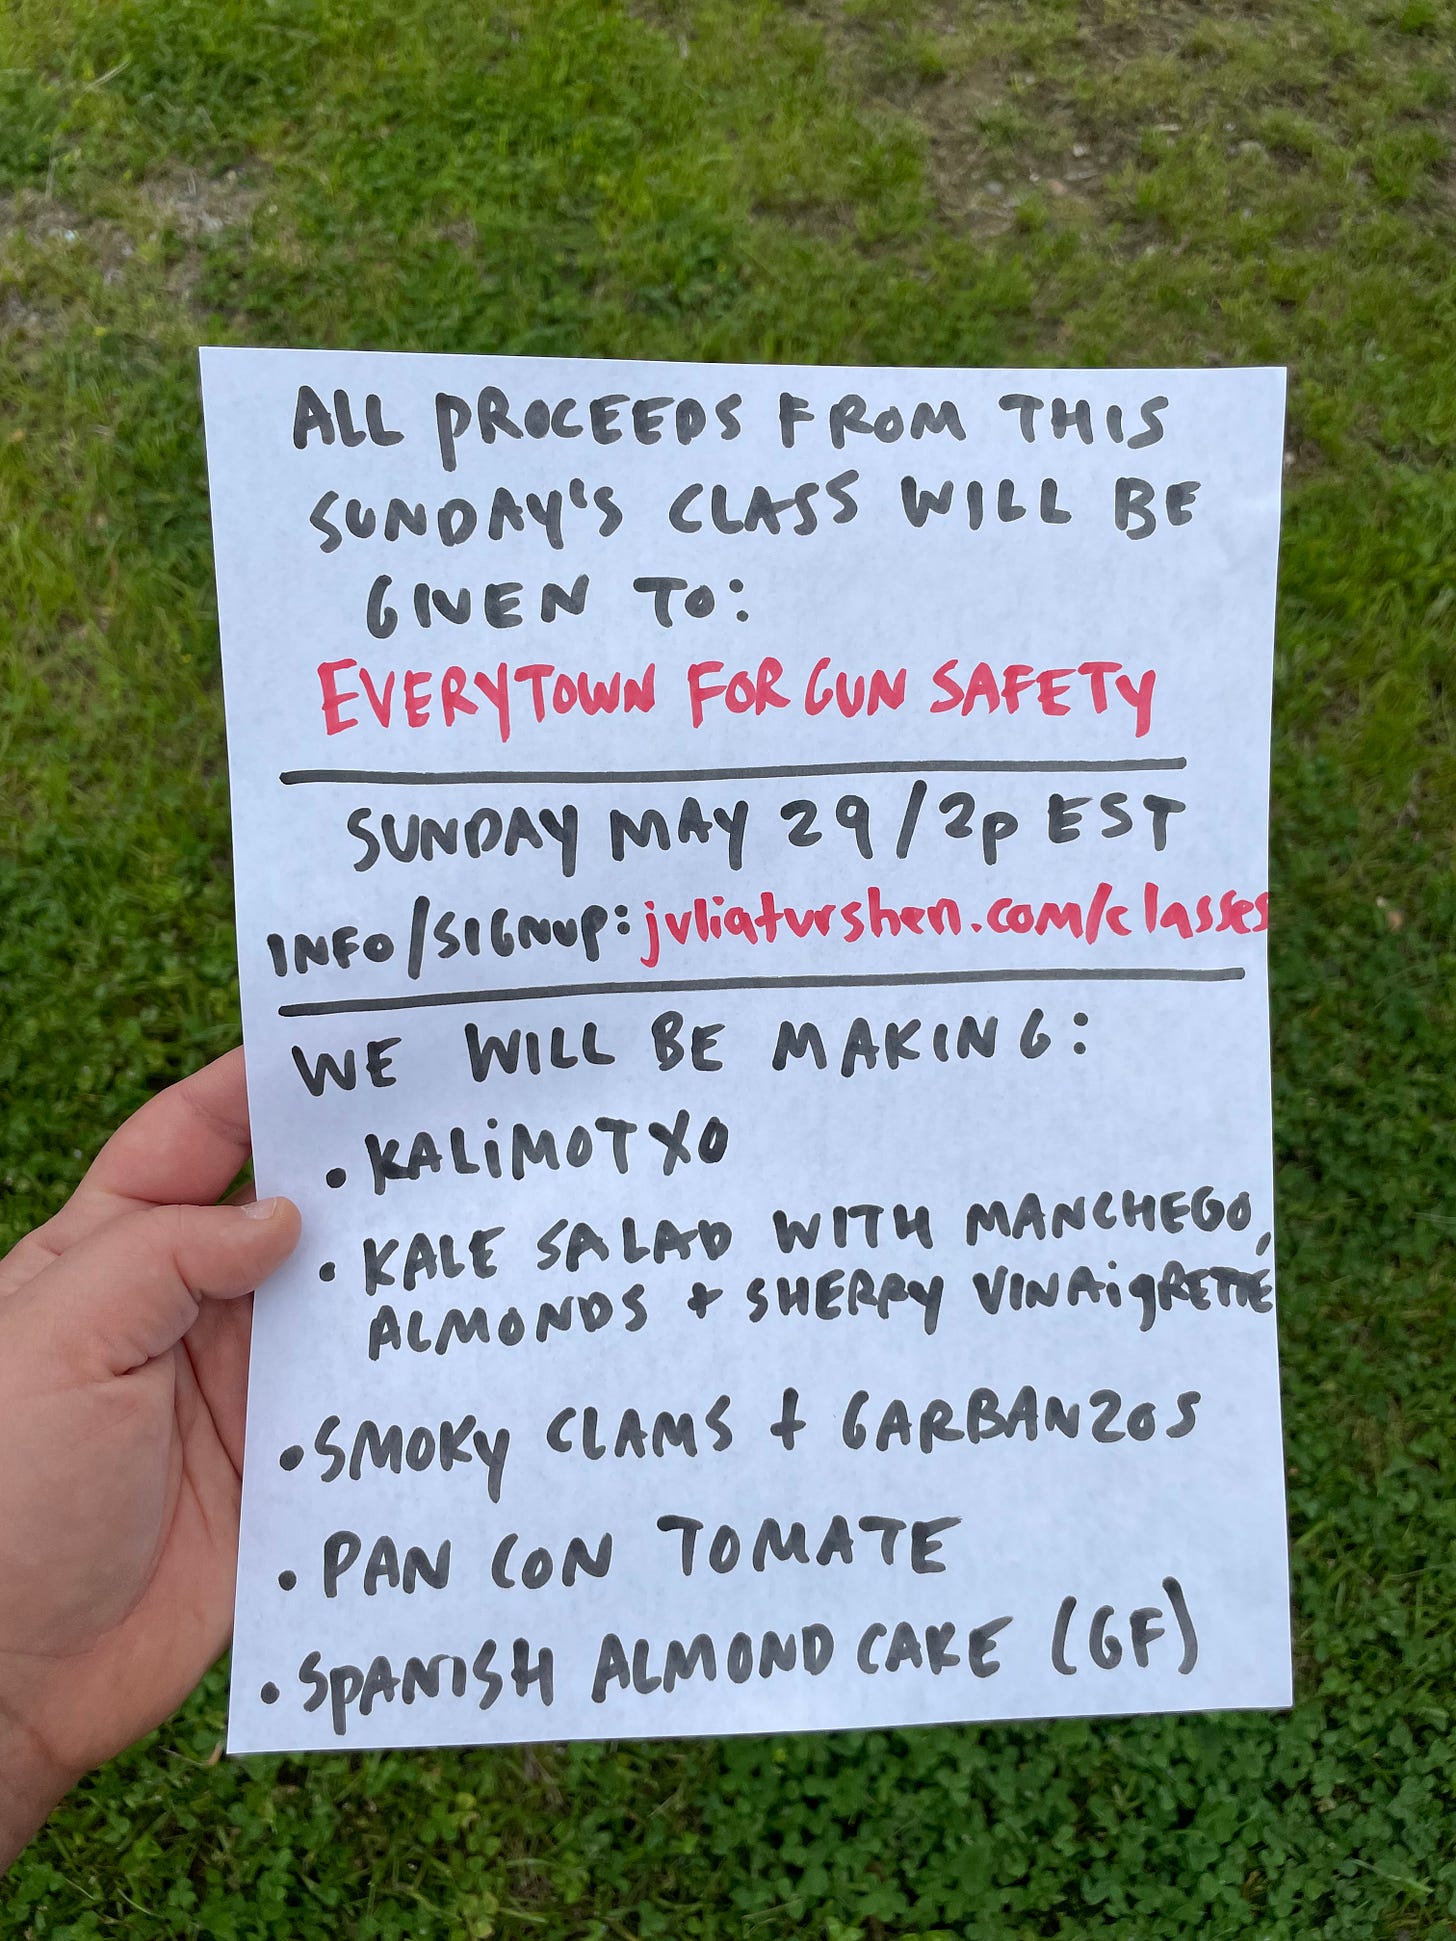 ALL PROCEEDS FROM THIS
SUNDAY'S CLASS WILL BE
GIVEN TO:
EVERYTOWN FOR GUN SAFETY
SUNDAY MAY 29/2p EST
INFO/SIGNUP: juliaturshen.com/classes
WE WILL BE MAKING:
• KALiMOTXO
• KALE SALAD WITH MANCHEGO,
ALMONDS + SHERRY VINAIGRETTE
• SMOKY CLAMS + GARBANZOS
• PAN CON TOMATE
• SPANISH ALMOND CAKE (GF)